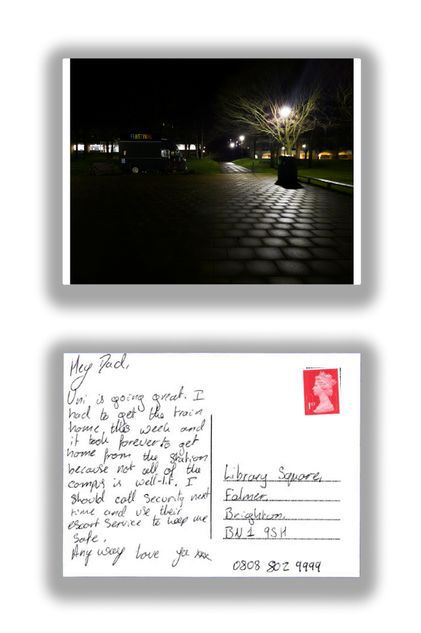 Hey Dad,
Uni is going great. I
had to get the train
home, this week and
it took forever to get
home from the station
because not all of the
campus is well-lit. I
should call security next
time and use their
escort service to keep me
safe.
Any way love ya xxx
1st
Library Square,
Falmer,
Brighton,
BN1 9SH
0808 802 9999